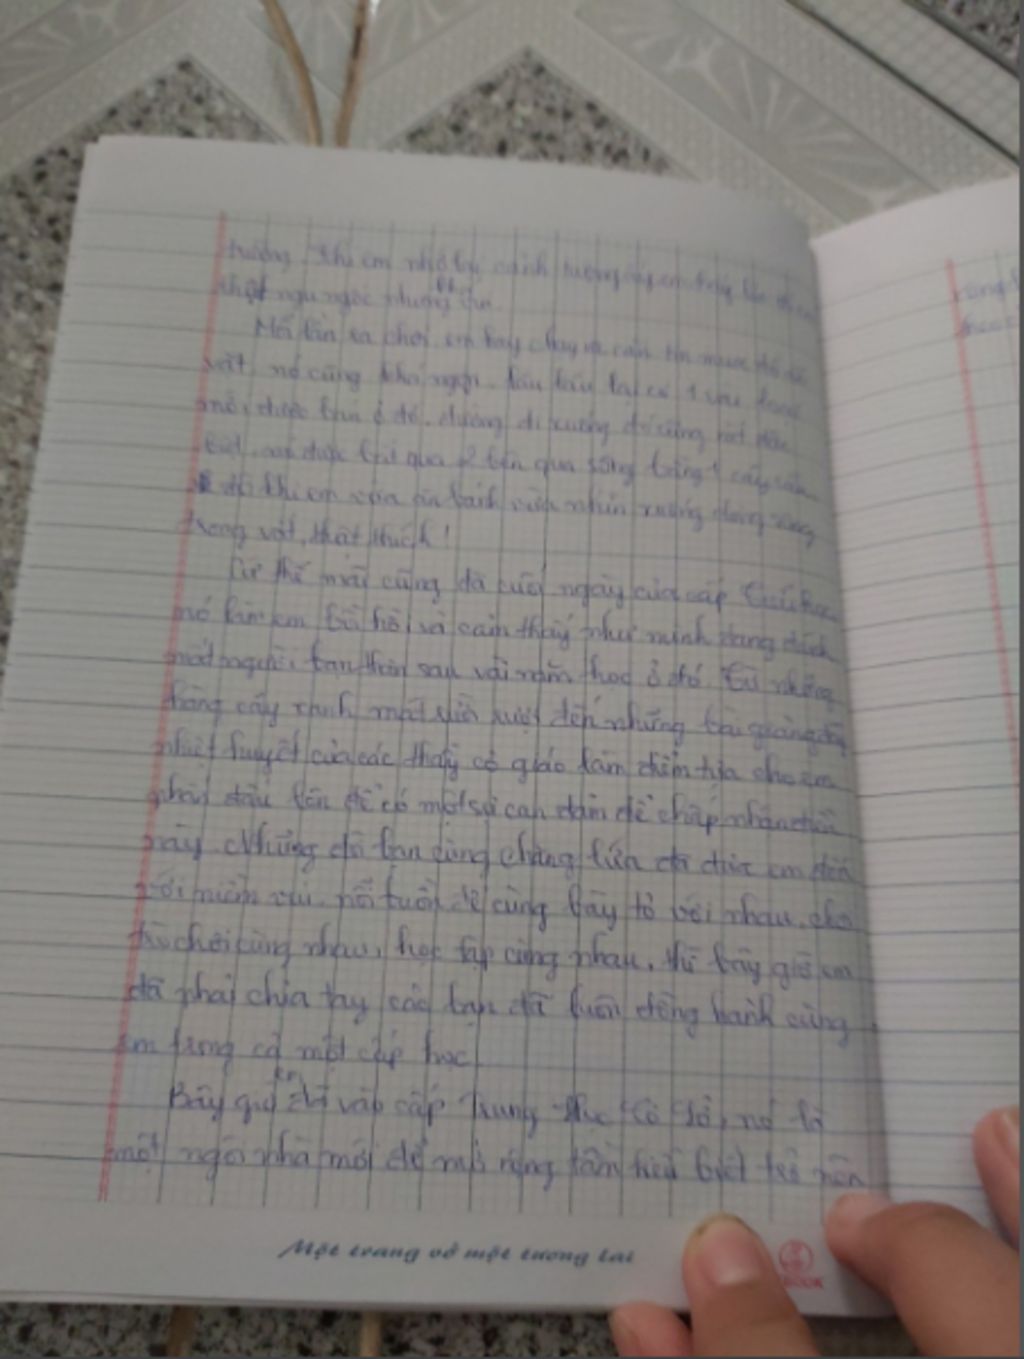 trường. Khi em nhớ lại cảnh tượng ấy em thấy
thật ngu ngốc nhưng
Mỗi lần ra chơi, em hay chạy ra căn tin mua đồ ăn
vặt, nó cũng khá ngon. Lâu lâu lại có 1 vài loại
mới được bán ở đó. đường đi xuống đó cũng rất
biệt, nó được bắt qua 2 bên qua sông bằng 1 cây cầu
đó khi em vừa ăn bánh vừa nhìn xuống dòng sông
trong vắt, thật thích!
Từ thế mãi cũng đã cuối ngày của cấp Tiểu học
nó làm em bồi hồi và cảm thấy như mình đang đánh
mất người bạn thân sau vài năm học ở đó. Từ những
hàng cây xanh mát rười rượi đến những bài giảng đầy
nhiệt huyết của các thầy cô giáo làm điểm tựa cho em
phấn đấu lên để có một sự can đảm để chấp nhận điều
này. Những đứa bạn cùng chang lứa đã đưa em đến
với niềm vui, nỗi buồn để cùng bày tỏ với nhau, cho
trò chơi cùng nhau, học tập cùng nhau, thì bây giờ em
đã phải chia tay các bạn đã luôn đồng hành cùng
em trong cả một cấp học.
Bây giờ em đã vào cấp Trung Học Cơ Sở, nó là
một ngôi nhà mới để mở rộng tầm hiểu biết trở nên
Một trang vở một tương lai